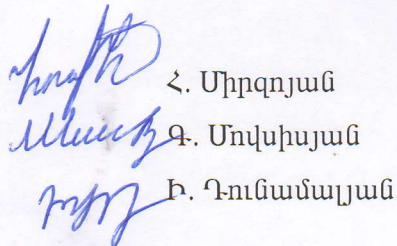 Հ. Միրզոյան
Գ. Մովսիսյան
Ի. Դունամալյան